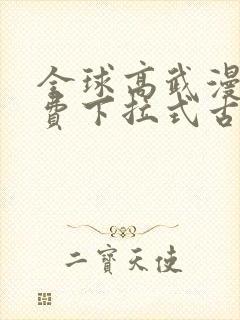 全球高武漫
费下拉式古
二寶天使